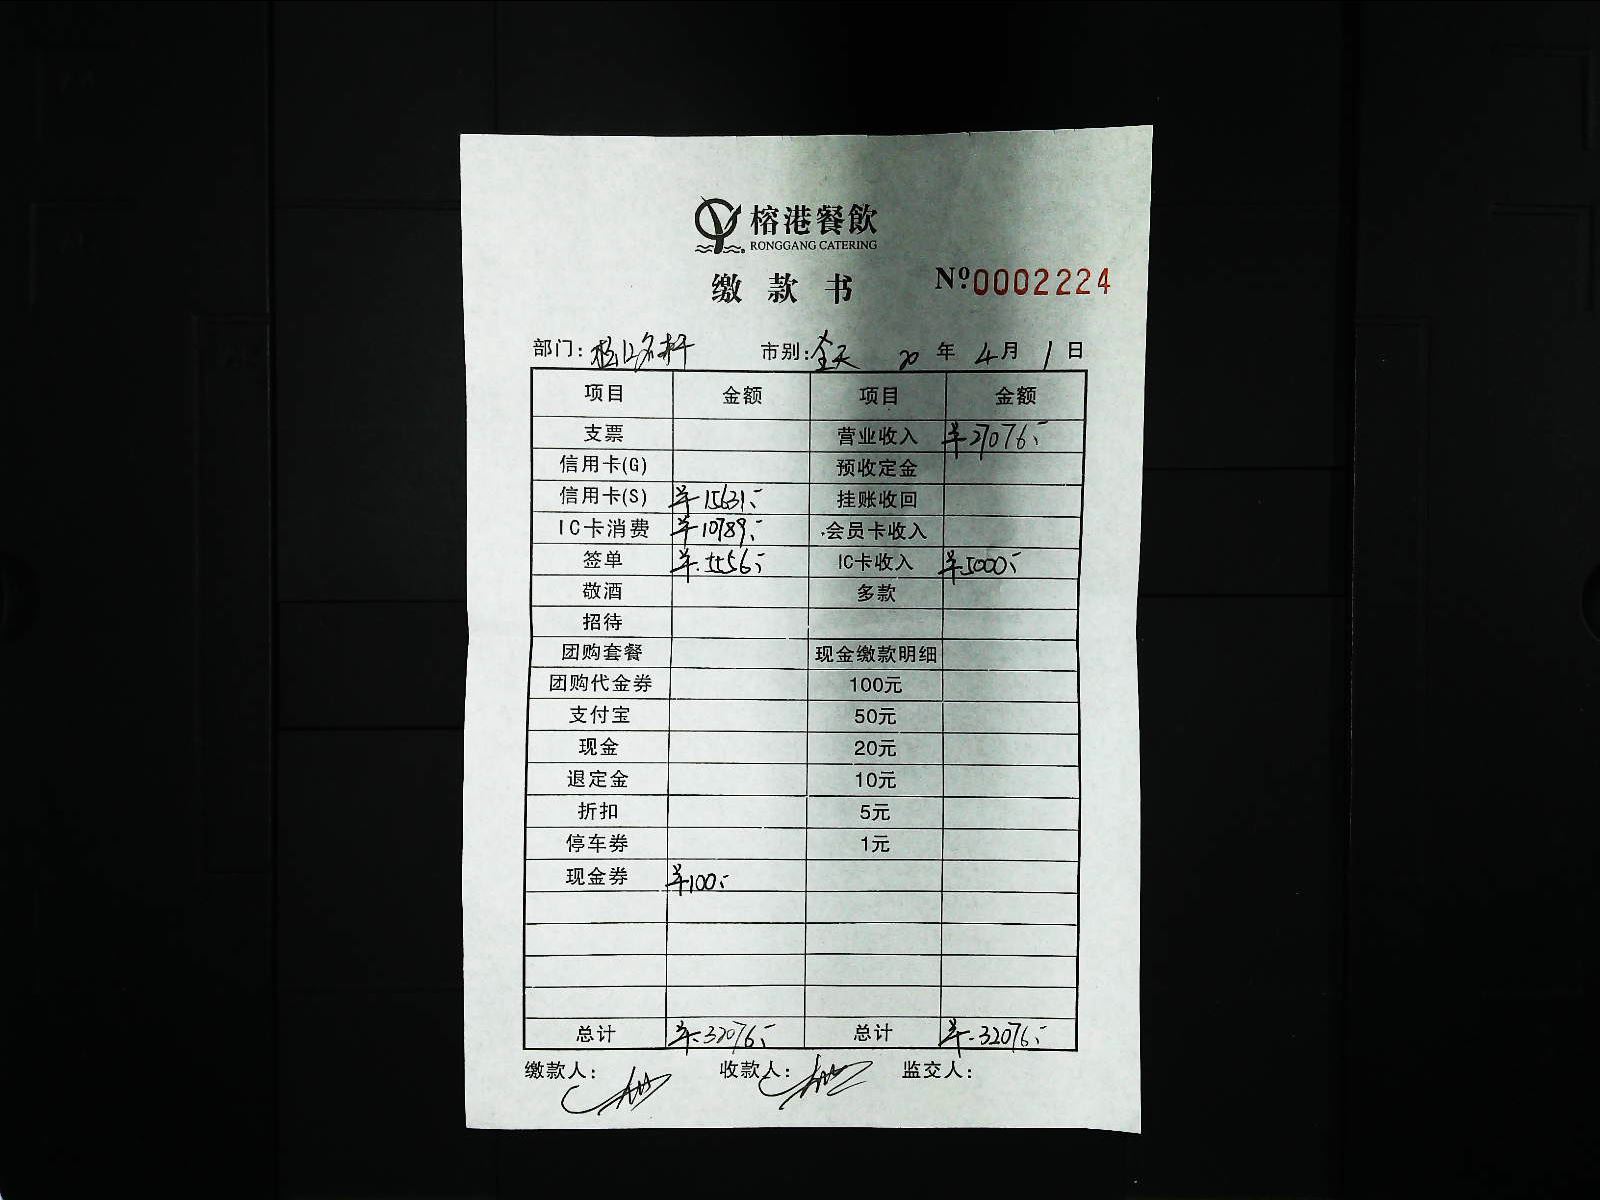 榕港餐飲
RONGGANG CATERING
缴款书 Nº0002224
部门: 市别:全天 20年4月1日
项目 金额 项目 金额
支票 营业收入 ¥27076.-
信用卡(G) 预收定金
信用卡(S) ¥15631.- 挂账收回
IC卡消费 ¥10789.- 会员卡收入
签单 ¥5556.- IC卡收入 ¥5000.-
敬酒 多款
招待
团购套餐 现金缴款明细
团购代金券 100元
支付宝 50元
现金 20元
退定金 10元
折扣 5元
停车券 1元
现金券 ¥100.-
总计 ¥32076.- 总计 ¥32076.-
缴款人: 收款人: 监交人: